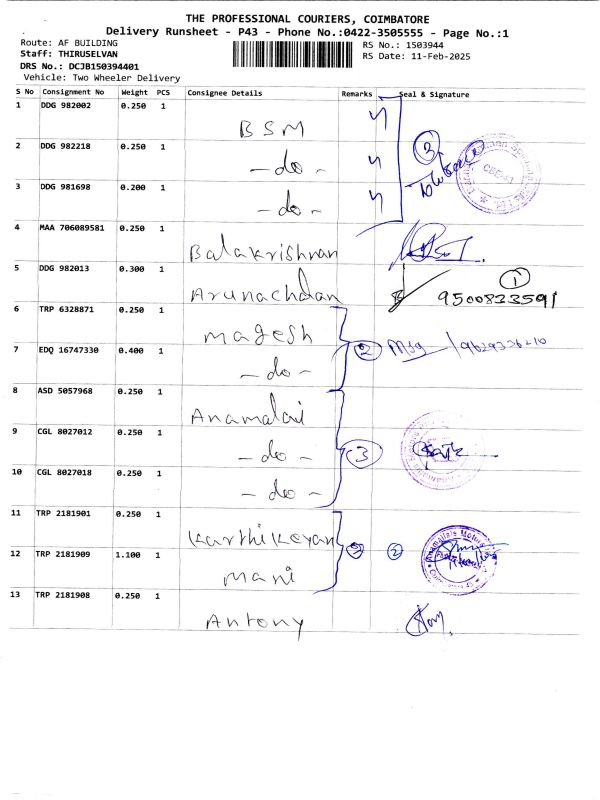 THE PROFESSIONAL COURIERS, COIMBATORE
Delivery Runsheet - P43 - Phone No.:0422-3505555 - Page No.:1
Route: AF BUILDING
RS No.: 1503944
Staff: THIRUSELVAN
RS Date: 11-Feb-2025
DRS No.: DCJB150394401
Vehicle: Two Wheeler Delivery
S No Consignment No Weight PCS Consignee Details Remarks Seal & Signature
1 DDG 982002 0.250 1 BSM
2 DDG 982218 0.250 1 - do - 3
3 DDG 981698 0.200 1 - do -
4 MAA 706089581 0.250 1 Balakrishnan
5 DDG 982013 0.300 1 Arunachalam 1 9500823591
6 TRP 6328871 0.250 1 Magesh
2
7 EDQ 16747330 0.400 1 - do -
8 ASD 5057968 0.250 1 Anamalai
9 CGL 8027012 0.250 1 - do - 3
10 CGL 8027018 0.250 1 - do -
11 TRP 2181901 0.250 1 Karthikeyan
2
12 TRP 2181909 1.100 1 Mani
13 TRP 2181908 0.250 1 Antony